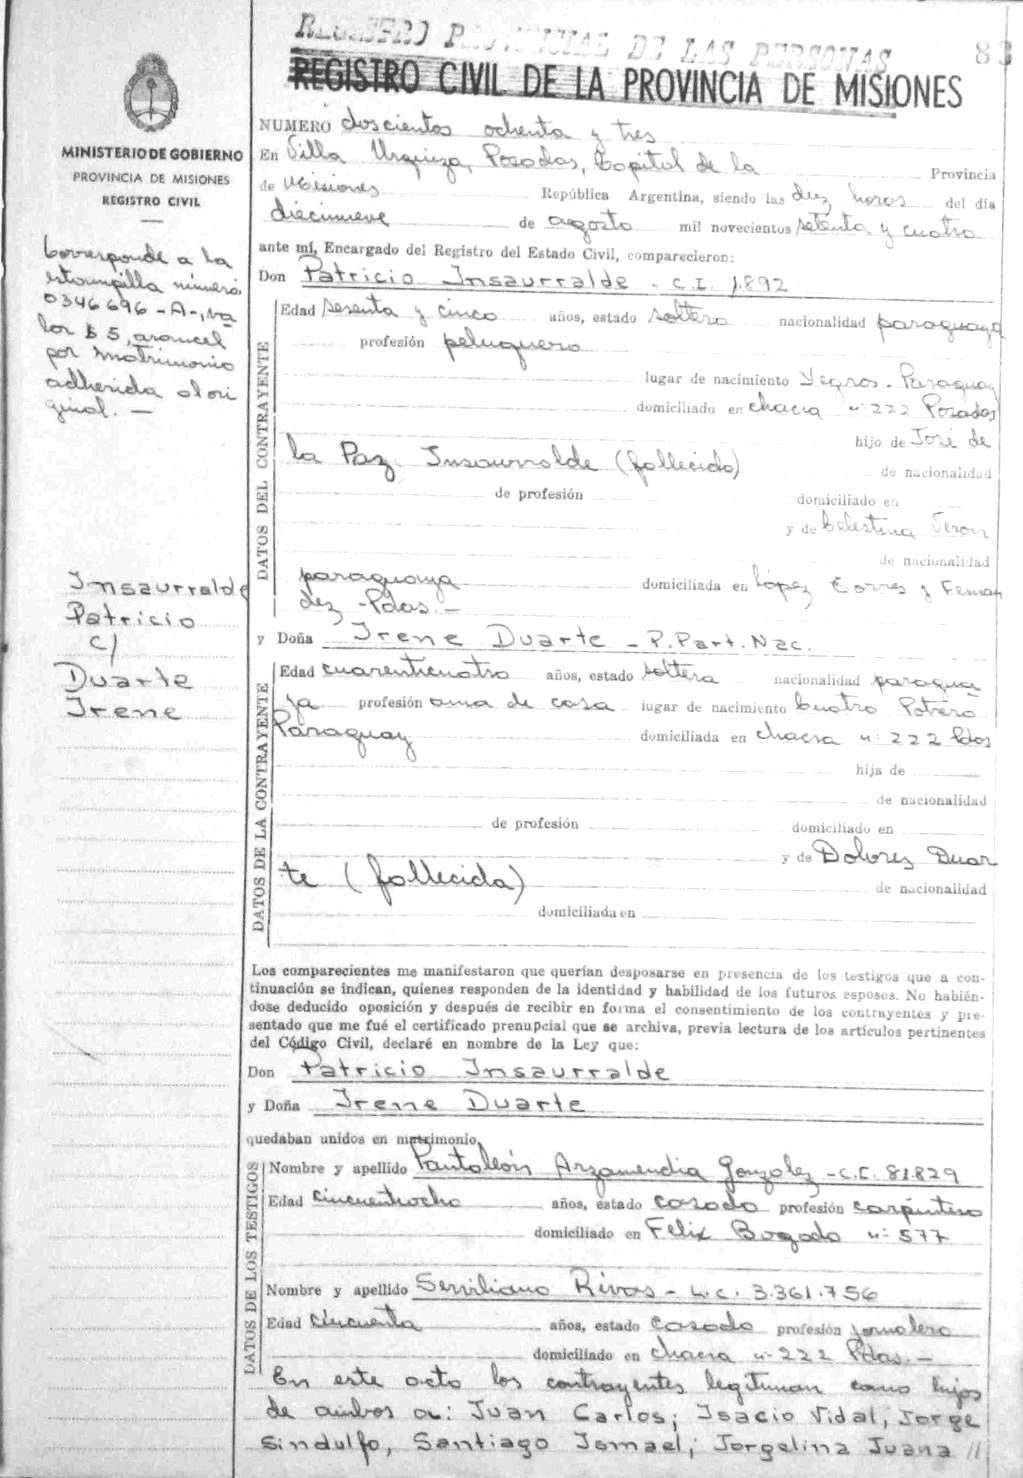 REGISTRO PROVINCIAL DE LAS PERSONAS
83
REGISTRO CIVIL DE LA PROVINCIA DE MISIONES
MINISTERIO DE GOBIERNO
PROVINCIA DE MISIONES
REGISTRO CIVIL
Corresponde a la
estampilla número
0346696-A-, va
lor $ 5, arancel
por matrimonio
adherida al ori
ginal. —
Insaurralde
Patricio
c/
Duarte
Irene
NUMERO doscientos ochenta y tres
En Villa Urquiza, Posadas, Capital de la Provincia
de Misiones República Argentina, siendo las diez horas del día
diecinueve de agosto mil novecientos setenta y cuatro
ante mí, Encargado del Registro del Estado Civil, comparecieron:
Don Patricio Insaurralde - C.I. 1.892
DATOS DEL CONTRAYENTE
Edad sesenta y cinco años, estado soltero nacionalidad paraguaya
profesión peluquero
lugar de nacimiento Yegros - Paraguay
domiciliado en chacra n: 222 Posadas
hijo de José de
la Paz Insaurralde (fallecido) de nacionalidad
de profesión domiciliado en
y de Celestina Veron
de nacionalidad
paraguaya domiciliada en López Torres y Fernan
dez - Pdas. —
y Doña Irene Duarte - P. Part. Nac.
DATOS DE LA CONTRAYENTE
Edad cuarenticuatro años, estado soltera nacionalidad paragua
ya profesión ama de casa lugar de nacimiento Cuatro Potrero
Paraguay domiciliada en chacra n: 222 Pdas
hija de
de nacionalidad
de profesión domiciliado en
y de Dolores Duar
te (fallecida) de nacionalidad
domiciliada en
Los comparecientes me manifestaron que querían desposarse en presencia de los testigos que a con-
tinuación se indican, quienes responden de la identidad y habilidad de los futuros esposos. No habién-
dose deducido oposición y después de recibir en forma el consentimiento de los contrayentes y pre-
sentado que me fué el certificado prenupcial que se archiva, previa lectura de los artículos pertinentes
del Código Civil, declaré en nombre de la Ley que:
Don Patricio Insaurralde
y Doña Irene Duarte
quedaban unidos en matrimonio.
DATOS DE LOS TESTIGOS
Nombre y apellido Pantaleón Arzamendia Gonzalez - C.I. 81.829
Edad cincuentiocho años, estado casado profesión carpintero
domiciliado en Felix Bogado n: 577
Nombre y apellido Serviliano Rivas - L.C. 3.361.756
Edad cincuenta años, estado casado profesión jornalero
domiciliado en chacra n: 222 Pdas. —
En este acto los contrayentes legitiman como hijos
de ambos a: Juan Carlos; Isacio Vidal; Jorge
Sindulfo, Santiago Ismael; Jorgelina Juana //